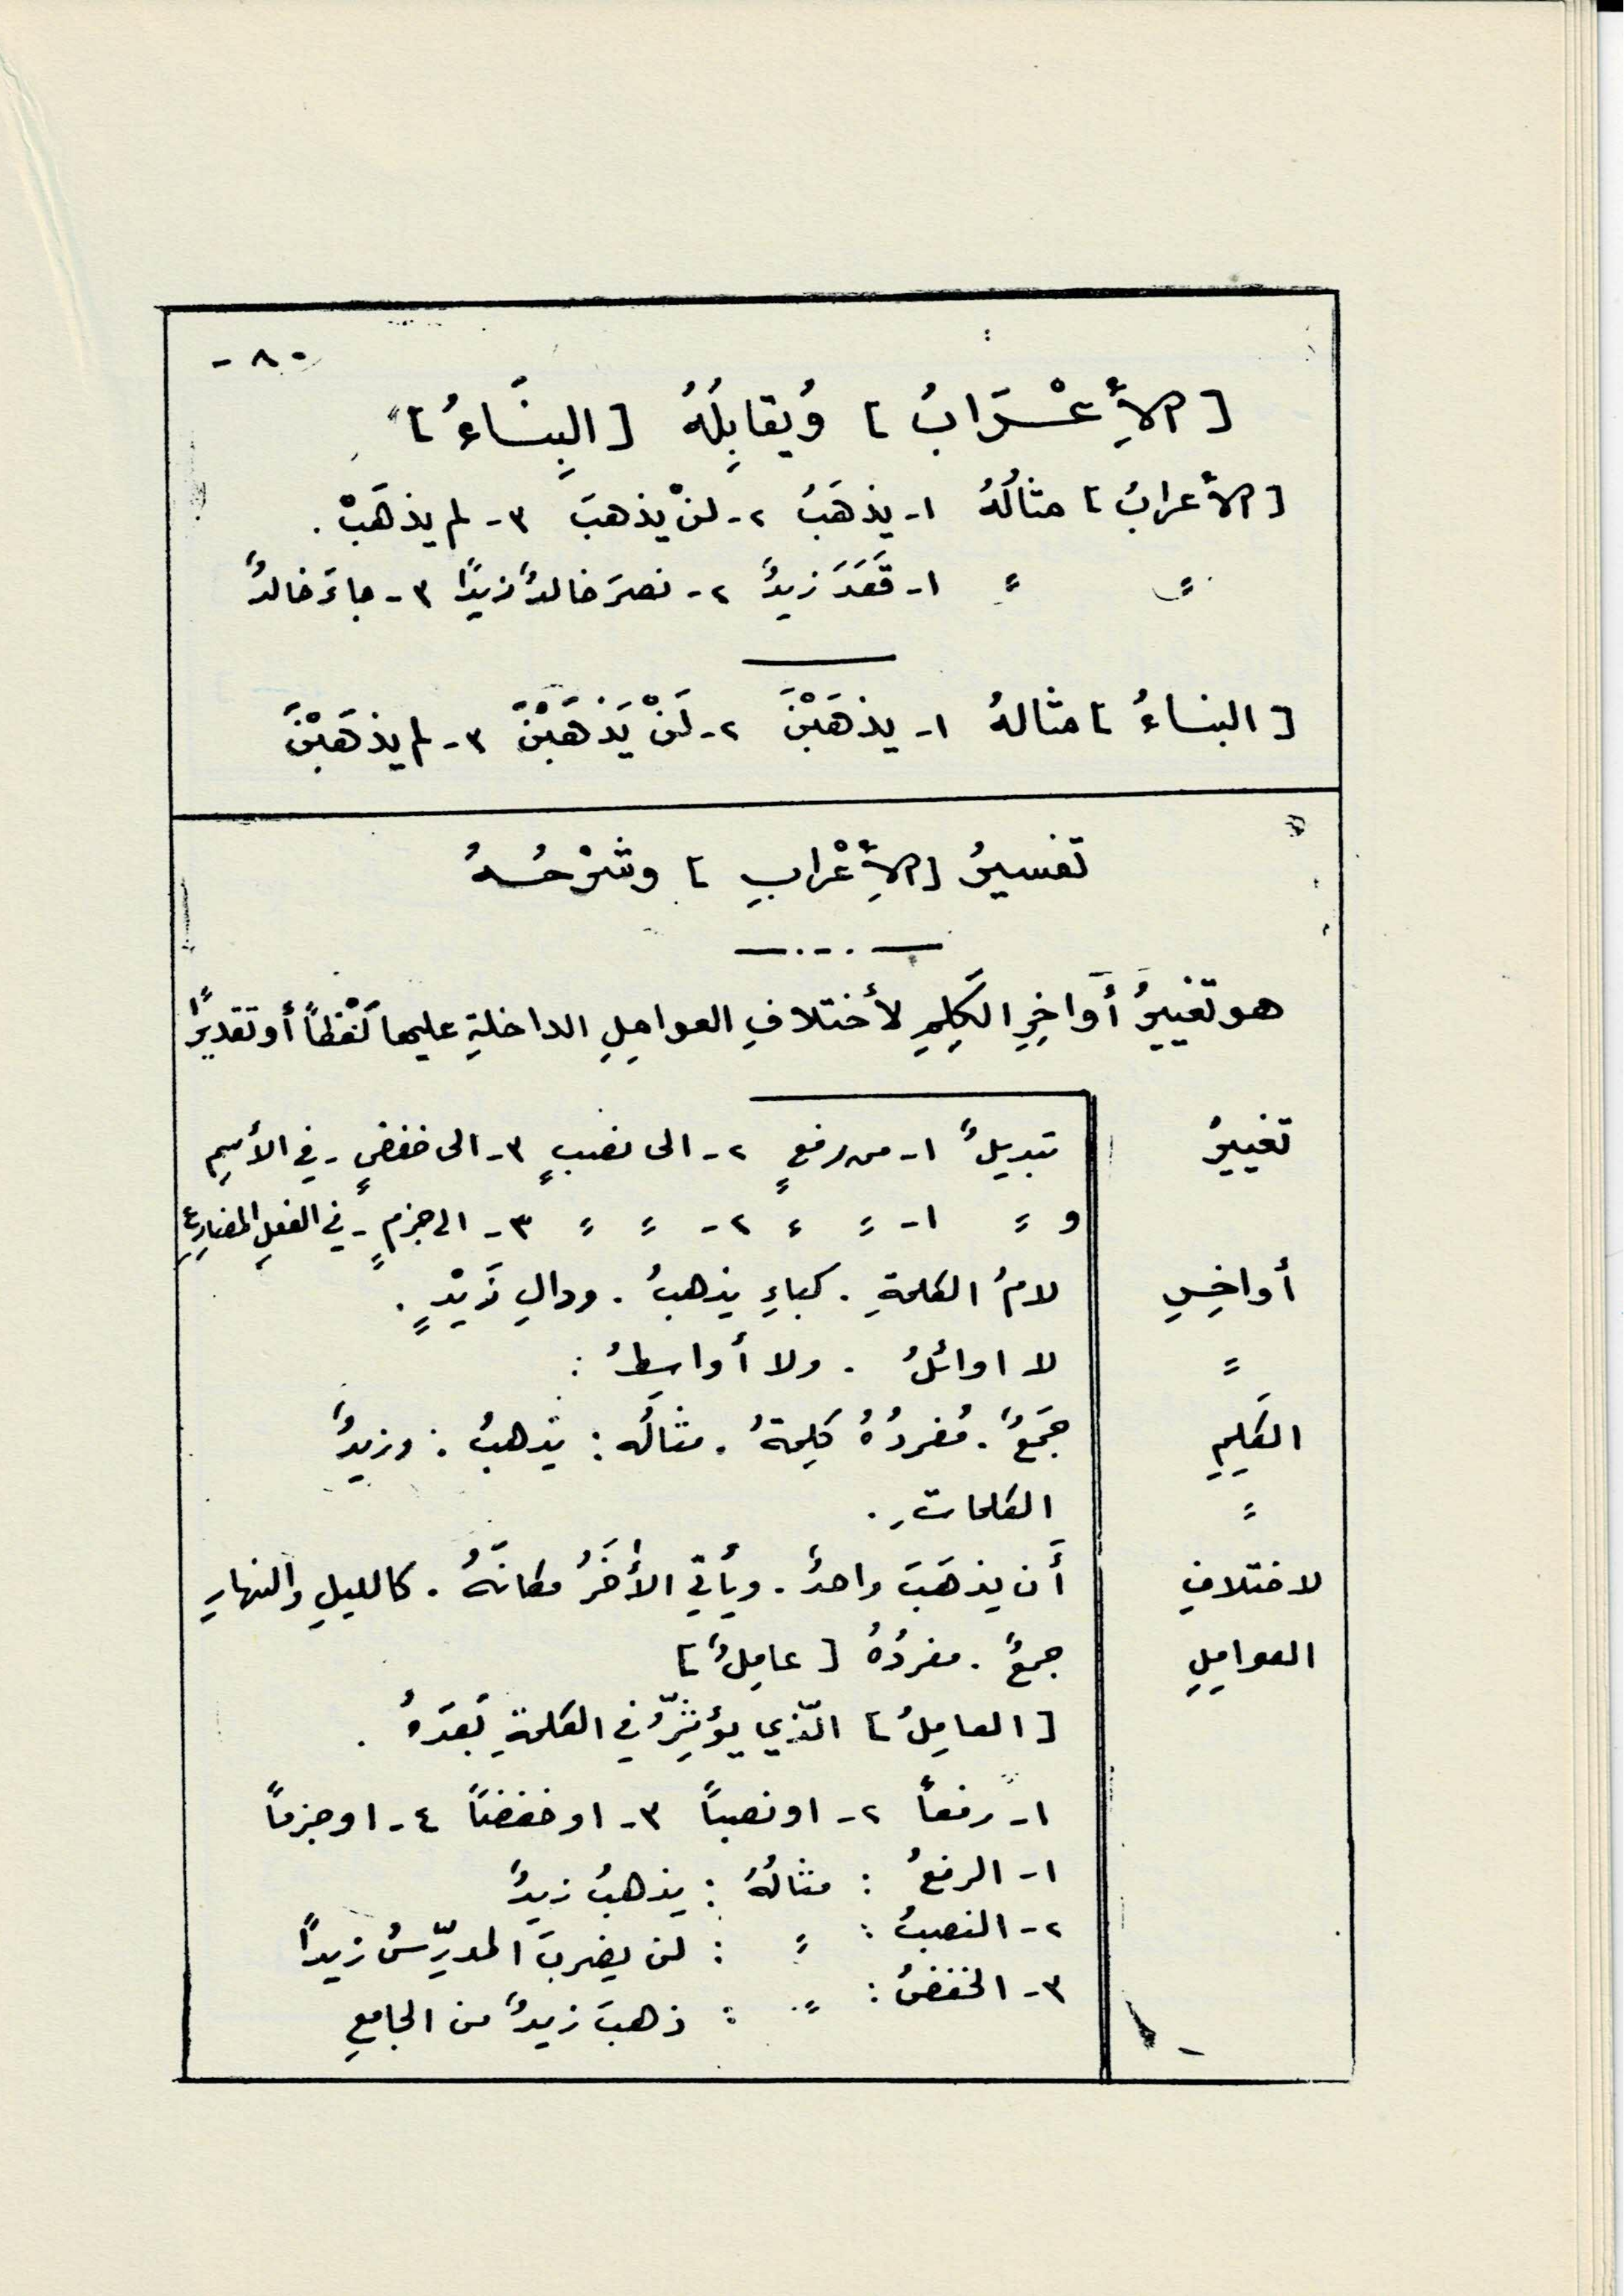 - ٨٠
[ الأِعْـرَابُ ] وَيُقابِلُهُ [ البِنَـاءُ ]
[ الأعرابُ ] مثالُهُ ١- يذهَبُ ٢- لنْ يذهبَ ٣- لم يذهَبْ .
〃 〃 ١- قَعَدَ زيدٌ ٢- نصرَ خالدٌ زيدًا ٣- جاءَ خالدٌ
[ البناءُ ] مثالهُ ١- يذهَبْنَ ٢- لَنْ يَذْهَبْنَ ٣- لم يذهَبْنَ
تفسيرُ [ الأِعْرابِ ] وشَرْحُـهُ
هو تغييرُ أَواخِرِ الكَلِمِ لأختلافِ العوامِلِ الداخلةِ عليها لَفْظاً أو تقديرًا
تغييرُ تبديلٌ ١- من رفعٍ ٢- الى نصبٍ ٣- الى خفضٍ - في الأسمِ
و 〃 ١- 〃 〃 ٢- 〃 〃 ٣- الى جزمٍ - في الفعلِ المضارِعِ
أواخِرِ لامُ الكلمةِ . كباءِ يذهبُ . ودالِ زَيْدٍ .
〃 لا اوائلُ . ولا أواسِطُ :
الكَلِمِ جَمْعٌ . مُفردُهُ كَلِمةٌ . مثالُه : يَذهبُ : وزيدٌ
〃 الكلماتِ .
لاختلافِ أَن يذهَبَ واحدٌ . ويأتي الأخَرُ مكانَهُ . كالليلِ والنهارِ
العوامِلِ جمعٌ . مفردُهُ [ عامِلٌ ]
[ العامِلُ ] الّذي يؤثِّرُ في الكلمةِ بَعدَهُ .
١- رفعاً ٢- او نصباً ٣- او خفضاً ٤- او جزماً
١- الرفعُ : مثالُهُ : يذهبُ زيدٌ
٢- النصبُ : 〃 : لن يضربَ المدرِّسُ زيداً
٣- الخفضُ : 〃 : ذهبَ زيدٌ من الجامعِ